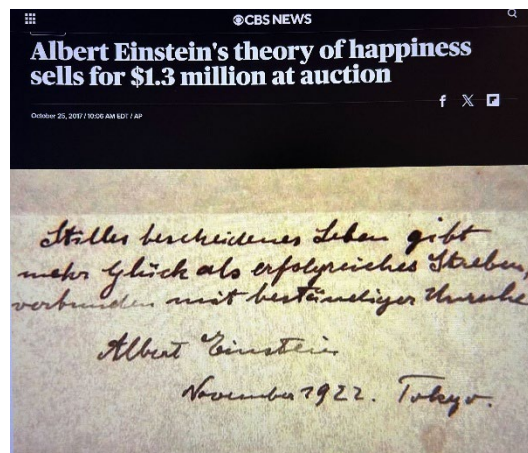 CBS NEWS
Albert Einstein's theory of happiness
sells for $1.3 million at auction
f X
October 25, 2017 / 10:06 AM EDT / AP
Stilles bescheidenes Leben gibt
mehr Glück als erfolgreiches Streben,
verbunden mit beständiger Unruhe
Albert Einstein
November 1922. Tokyo.